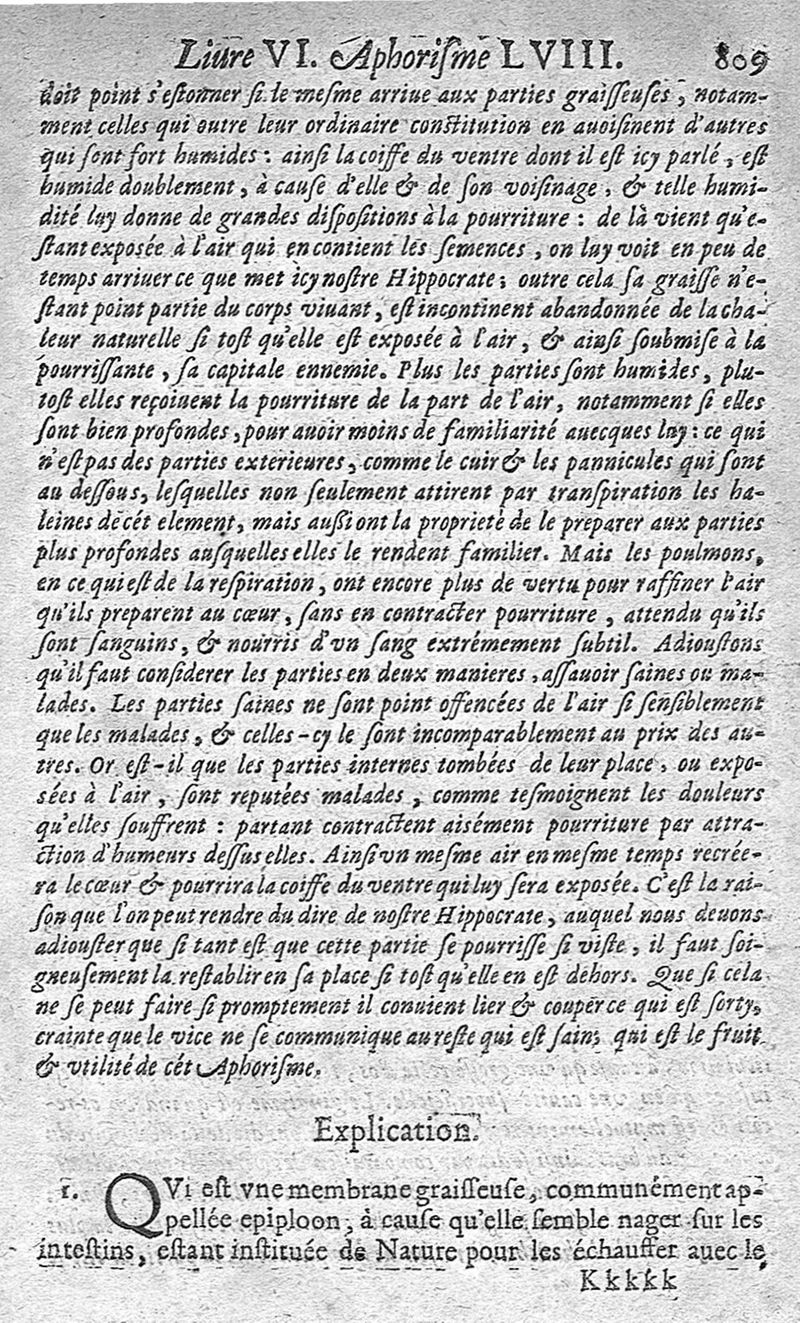 Liure VI. Aphoriſme LVIII. 809
doit point s'eſtonner ſi le meſme arriue aux parties graiſſeuſes, notam-
ment celles qui outre leur ordinaire conſtitution en auoiſinent d'autres
qui ſont fort humides: ainſi la coiffe du ventre dont il eſt icy parlé, eſt
humide doublement, à cauſe d'elle & de ſon voiſinage, & telle humi-
dité luy donne de grandes diſpoſitions à la pourriture: de là vient qu'e-
ſtant expoſée à l'air qui en contient les ſemences, on luy voit en peu de
temps arriuer ce que met icy noſtre Hippocrate; outre cela ſa graiſſe n'e-
ſtant point partie du corps viuant, eſt incontinent abandonnée de la cha-
leur naturelle ſi toſt qu'elle eſt expoſée à l'air, & ainſi ſoubmiſe à la
pourriſſante, ſa capitale ennemie. Plus les parties ſont humides, plu-
toſt elles reçoiuent la pourriture de la part de l'air, notamment ſi elles
ſont bien profondes, pour auoir moins de familiarité auecques luy: ce qui
n'eſt pas des parties exterieures, comme le cuir & les pannicules qui ſont
au deſſous, leſquelles non ſeulement attirent par tranſpiration les ha-
leines de cét element, mais auſſi ont la proprieté de le preparer aux parties
plus profondes auſquelles elles le rendent familier. Mais les poulmons,
en ce qui eſt de la reſpiration, ont encore plus de vertu pour raffiner l'air
qu'ils preparent au cœur, ſans en contracter pourriture, attendu qu'ils
ſont ſanguins, & nourris d'vn ſang extrémement ſubtil. Adiouſtons
qu'il faut conſiderer les parties en deux manieres, aſſauoir ſaines ou ma-
lades. Les parties ſaines ne ſont point offencées de l'air ſi ſenſiblement
que les malades, & celles-cy le ſont incomparablement au prix des au-
tres. Or eſt-il que les parties internes tombées de leur place, ou expo-
sées à l'air, ſont reputées malades, comme teſmoignent les douleurs
qu'elles ſouffrent: partant contractent aiſément pourriture par attra-
ction d'humeurs deſſus elles. Ainſi vn meſme air en meſme temps recrée-
ra le cœur & pourrira la coiffe du ventre qui luy ſera expoſée. C'eſt la rai-
ſon que l'on peut rendre du dire de noſtre Hippocrate, auquel nous deuons
adiouſter que ſi tant eſt que cette partie ſe pourriſſe ſi viſte, il faut ſoi-
gneuſement la reſtablir en ſa place ſi toſt qu'elle en eſt dehors. Que ſi cela
ne ſe peut faire ſi promptement il conuient lier & couper ce qui eſt ſorty,
crainte que le vice ne ſe communique au reſte qui eſt ſain; qui eſt le fruit
& vtilité de cét Aphoriſme.
Explication.
1. QVi eſt vne membrane graiſſeuſe, communément ap-
pellée epiploon, à cauſe qu'elle ſemble nager ſur les
inteſtins, eſtant inſtituée de Nature pour les échauffer auec le
Kkkkk